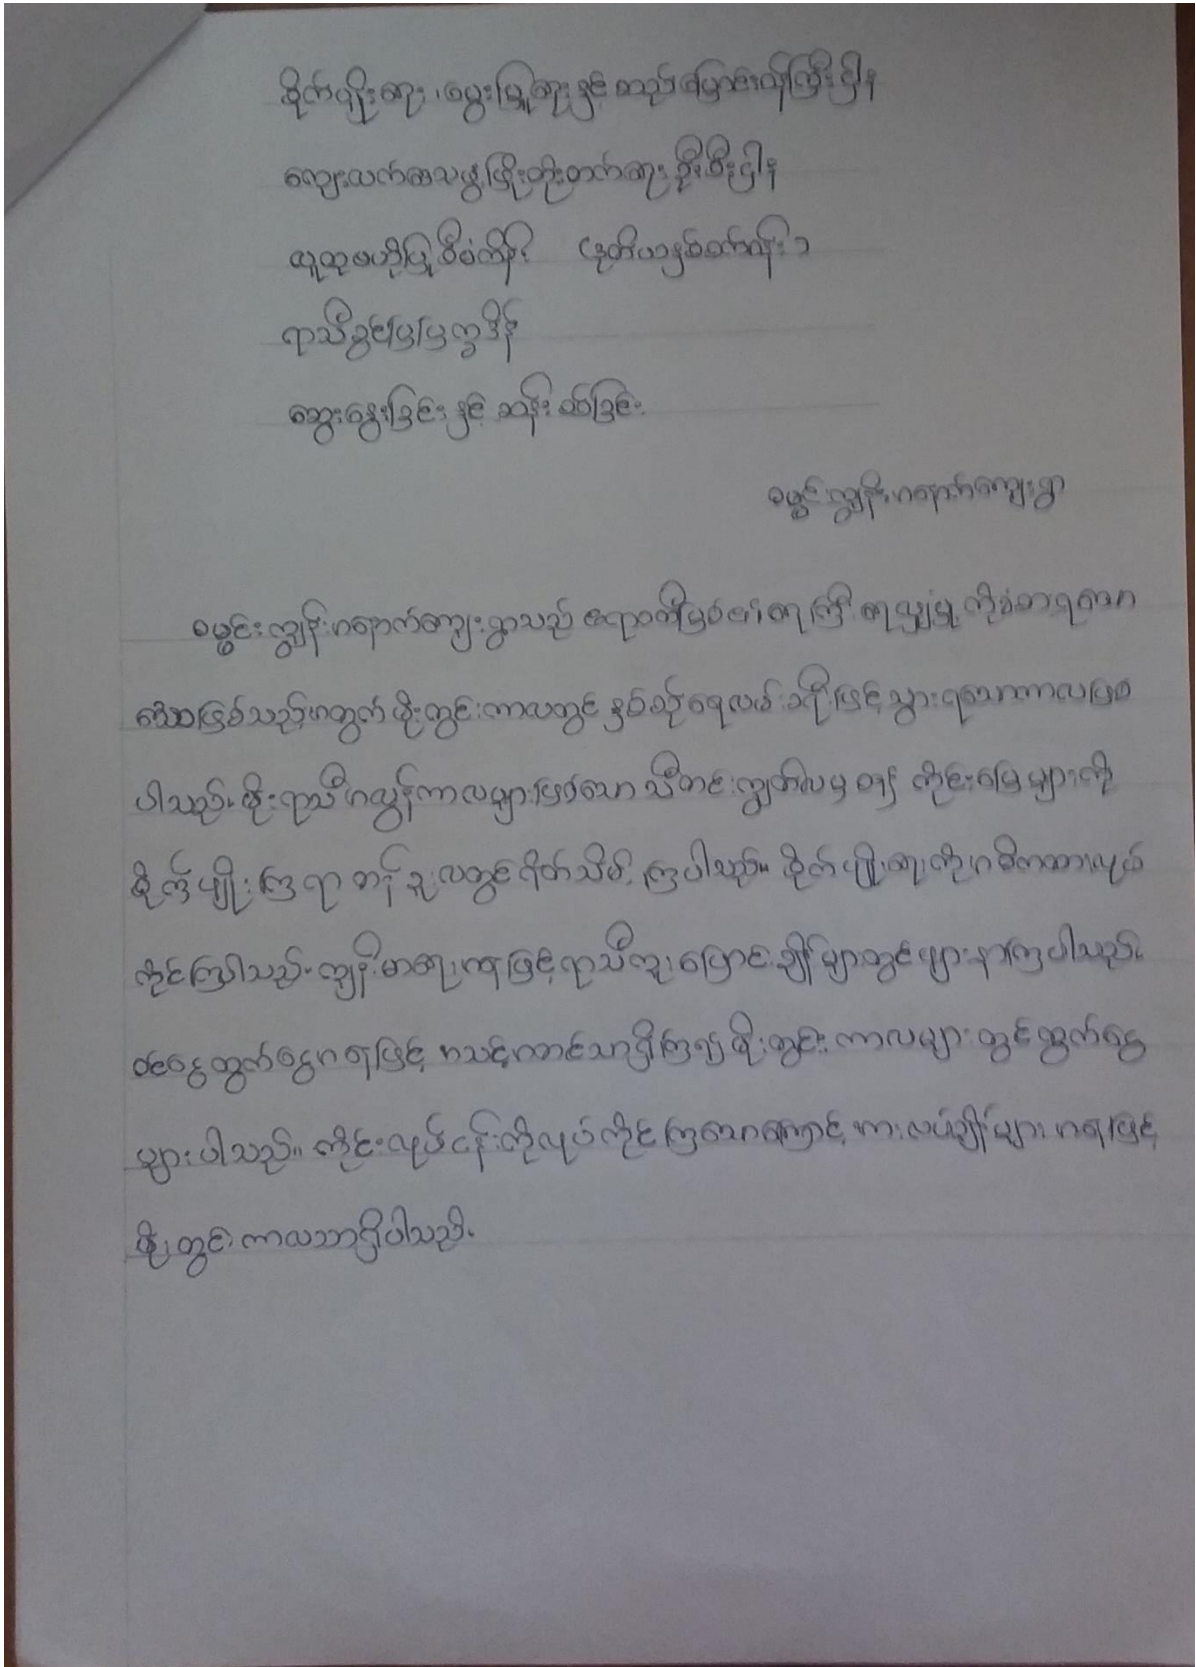 စိုက်ပျိုးရေး ၊ မွေးမြူရေးနှင့် ဆည်မြောင်းဝန်ကြီးဌာန
ကျေးလက်ဒေသဖွံ့ဖြိုးတိုးတက်ရေး ဦးစီးဌာန
လူထုဗဟိုပြု စီမံကိန်း (ဒုတိယနှစ်စက်ဝန်း)
ရာသီခွင်ပြပြက္ခဒိန်
ဆွေးနွေးခြင်း နှင့် ဆန်းစစ်ခြင်း
စမ္ဗင်းကျွန်းအနောက်ကျေးရွာ
စမ္ဗင်းကျွန်းအနောက်ကျေးရွာသည် ဧရာဝတီမြစ်၏ ရေကြီး ရေလျှံမှု ကိုခံစားရသော
ဒေသဖြစ်သည့်အတွက် မိုးတွင်းကာလတွင် နှစ်စဉ် ရေလမ်းခရီးဖြင့် သွားရသောကာလဖြစ်
ပါသည်။ မိုးရာသီအလွန်ကာလများဖြစ်သော သီတင်းကျွတ်လမှ စ၍ ကိုင်းမြေများကို
စိုက်ပျိုးကြရာ တန်ခူးလတွင် ရိတ်သိမ်းကြပါသည်။ စိုက်ပျိုးရေးကို အဓိကထားလုပ်
ကိုင်ကြပါသည်။ ကျန်းမာရေးအနေဖြင့် ရာသီကူးပြောင်းချိန်များတွင် ဖျားနာကြပါသည်။
ဝင်ငွေထွက်ငွေအနေဖြင့် အသင့်အတင့်သာရှိကြ၍ မိုးတွင်းကာလများတွင် ထွက်ငွေ
များပါသည်။ ကိုင်းလုပ်ငန်းကိုလုပ်ကိုင်ကြသောကြောင့် အားလပ်ချိန်များ အနေဖြင့်
မိုးတွင်းကာလသာရှိပါသည်။